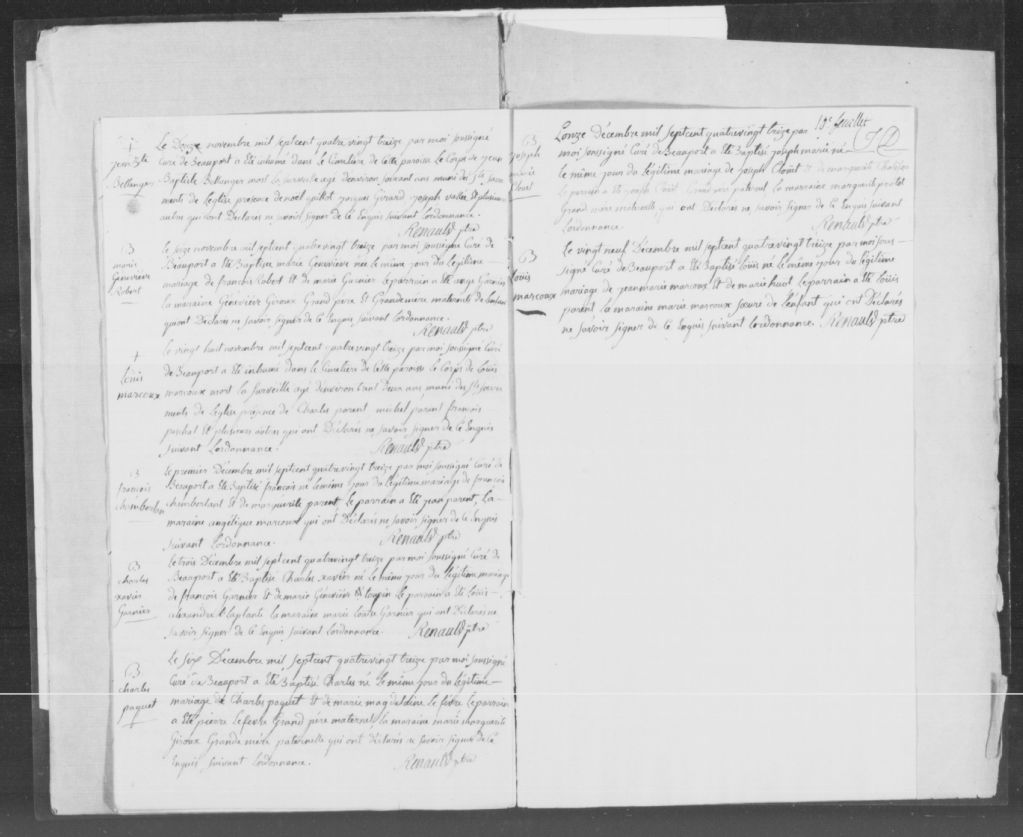 +
jean Bte
Bellanger
Le Douze novembre mil septcent quatrevingt treize par moi soussigné
Curé de Beauport a été inhumé dans le Cimetiere de Cette paroisse le Corps de jean
Baptiste Bellanger mort la surveille agé denviron soixant ans muni des Sts sacre
ments de Leglise présence de noel jacques Girard joseph vallée et plusieurs
autres qui ont Déclarés ne savoir signer de ce Enquis suivant Lordonnance.
Renauld ptre
B
marie
Geneviève
Robert
Le seize novembre mil septcent quatrevingt treize par moi soussigné Curé de
Beauport a été Baptisée marie Geneviève née le même jour du légitime
mariage de françois Robert et de marie Garnier le parrain a été ange Garnier
la maraine Geneviève Giroux Grand père et Grandemère maternels de lenfant
qui ont Déclarés ne savoir signer de ce Enquis suivant Lordonnance.
Renauld ptre
+
Louis
marcoux
Le vingt huit novembre mil septcent quatrevingt treize par moi soussigné Curé
de Beauport a été inhumé dans le Cimetiere de Cette paroisse le Corps de Louis
marcoux mort la surveille agé denviron deux ans muni des Sts sacre
ments de Leglise présence de Charles parent michel parent françois
paschal et plusieurs autres qui ont Déclarés ne savoir signer de ce Enquis
suivant Lordonnance.
Renauld ptre
B
françois
chamberlan
Le premier Décembre mil septcent quatrevingt treize par moi soussigné Curé de
Beauport a été Baptisé françois né le même jour du légitime mariage de françois
chamberlant et de marguerite parent, le parrain a été jean parent, La
maraine angélique marcoux qui ont Déclarés ne savoir signer de ce Enquis
suivant Lordonnance.
Renauld ptre
B
charles
xavier
Garnier
Le trois Décembre mil septcent quatrevingt treize par moi soussigné Curé de
Beauport a été Baptisé Charles xavier né le même jour du légitime mariage
de françois Garnier et de marie Geneviève toupin le parrain a été Louis
alexandre Laplante la maraine marie Garnier qui ont Déclarés ne
savoir signer de ce Enquis suivant Lordonnance.
Renauld ptre
B
charles
paquet
Le six Décembre mil septcent quatrevingt treize par moi soussigné
Curé de Beauport a été Baptisé Charles né le même jour du légitime
mariage de Charles paquet et de marie magdeleine le fevre le parrain
a été pierre Lefevre Grand père maternel la maraine marie marguerite
Giroux Grande mère paternelle qui ont déclarés ne savoir signer de ce
Enquis suivant Lordonnance.
Renauld ptre
10e feuillet
B
joseph
marie
Clouet
Lonze décembre mil septcent quatrevingt treize par
moi soussigné Curé de Beauport a été Baptisé joseph marie né
le même jour du légitime mariage de joseph Clouet et de marguerite
le parrain a été joseph Clouet Grand père paternel la marraine marguerite
Grand mère maternelle qui ont Déclarés ne savoir signer de ce Enquis suivant
Lordonnance.
Renauld ptre
B
Louis
marcoux
Le vingt neuf Décembre mil septcent quatrevingt treize par moi sous
signé Curé de Beauport a été Baptisé Louis né le même jour du légitime
mariage de jean marie marcoux et de marie huot le parrain a été Louis
parent la maraine marie marcoux sœure de lenfant qui ont Déclarés
ne savoir signer de ce Enquis suivant Lordonnance. Renauld ptre